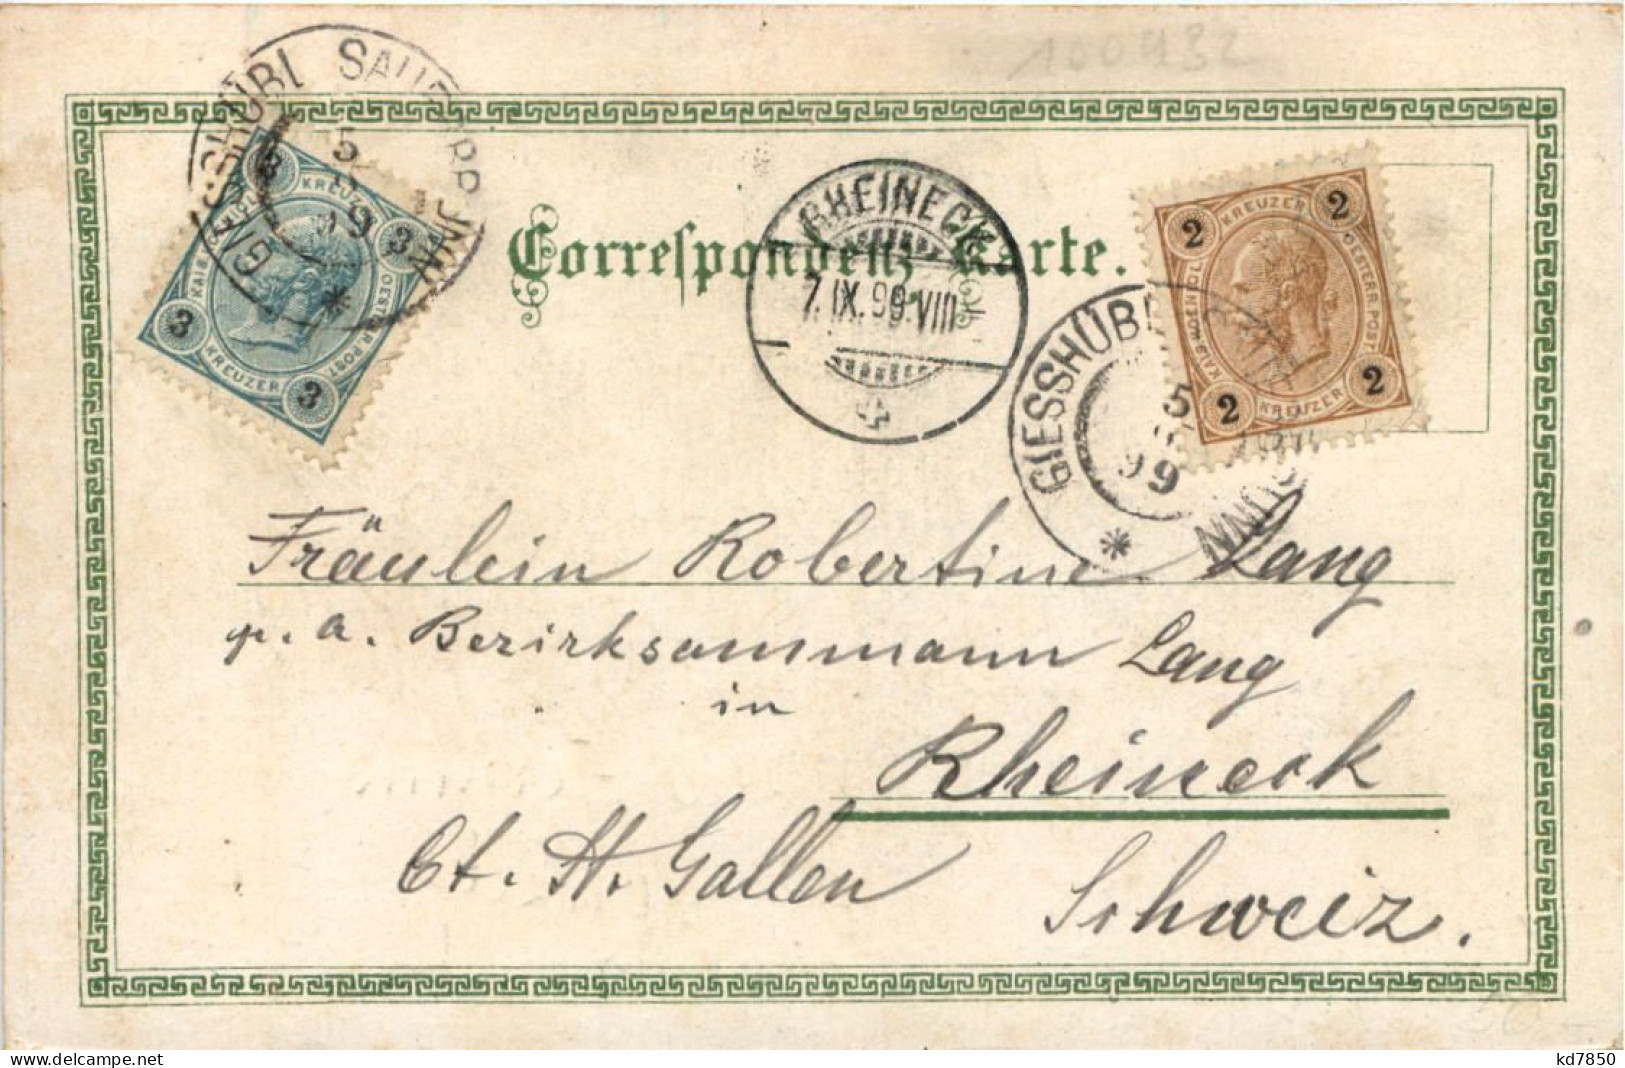 100432
GIESSHÜBL SAUERBRUNN
5
99
KAIS. KÖNIGL. OESTERR. POST.
KREUZER
3
3
3
3
KREUZER
Correspondenz-Karte.
RHEINECK
7.IX.99.VIII
KAIS. KÖNIGL. OESTERR. POST.
KREUZER
2
2
2
2
KREUZER
GIESSHÜBL SAUERBRUNN
5
99
Fräulein Robertine Lang
p. a. Bezirksammann Lang
in
Rheineck
Ct. St. Gallen
Schweiz.
kd7850